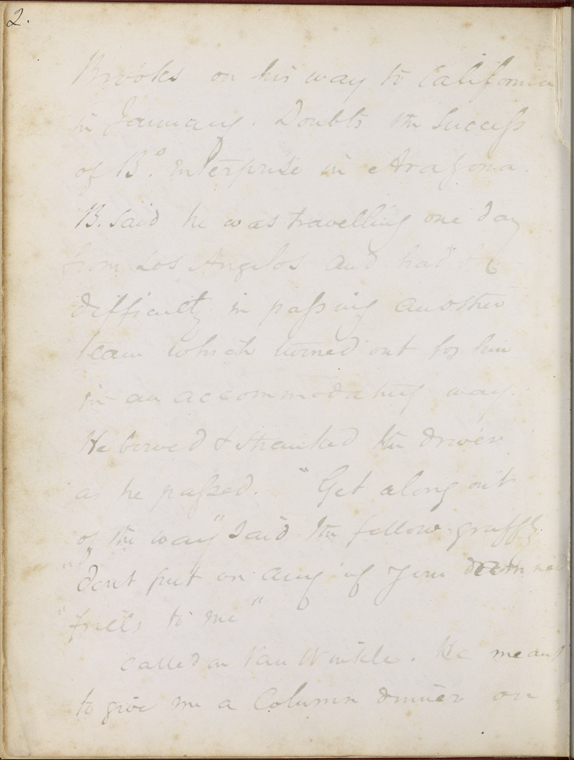 2.
Brooks on his way to California
in January. Doubts the success
of B's enterprise in
B. said he was travelling one day
from Los Angelos and had
difficulty in passing another
team which turned out for him
in an accommodating way.
He bowed & thanked the driver
as he passed. "Get along out
of the way" said the fellow gruffly
"dont put on any of your
frills to me"
Called on Van Winkle. He meant
to give me a Column dinner on